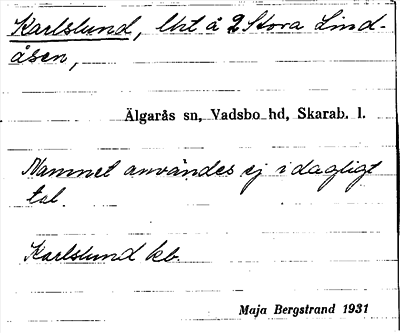 Karlslund, lht å 2 Stora Lind-
åsen,
Älgarås sn, Vadsbo hd, Skarab. l.
Namnet användes ej i dagligt
tal.
Karlslund kb.
Maja Bergstrand 1931